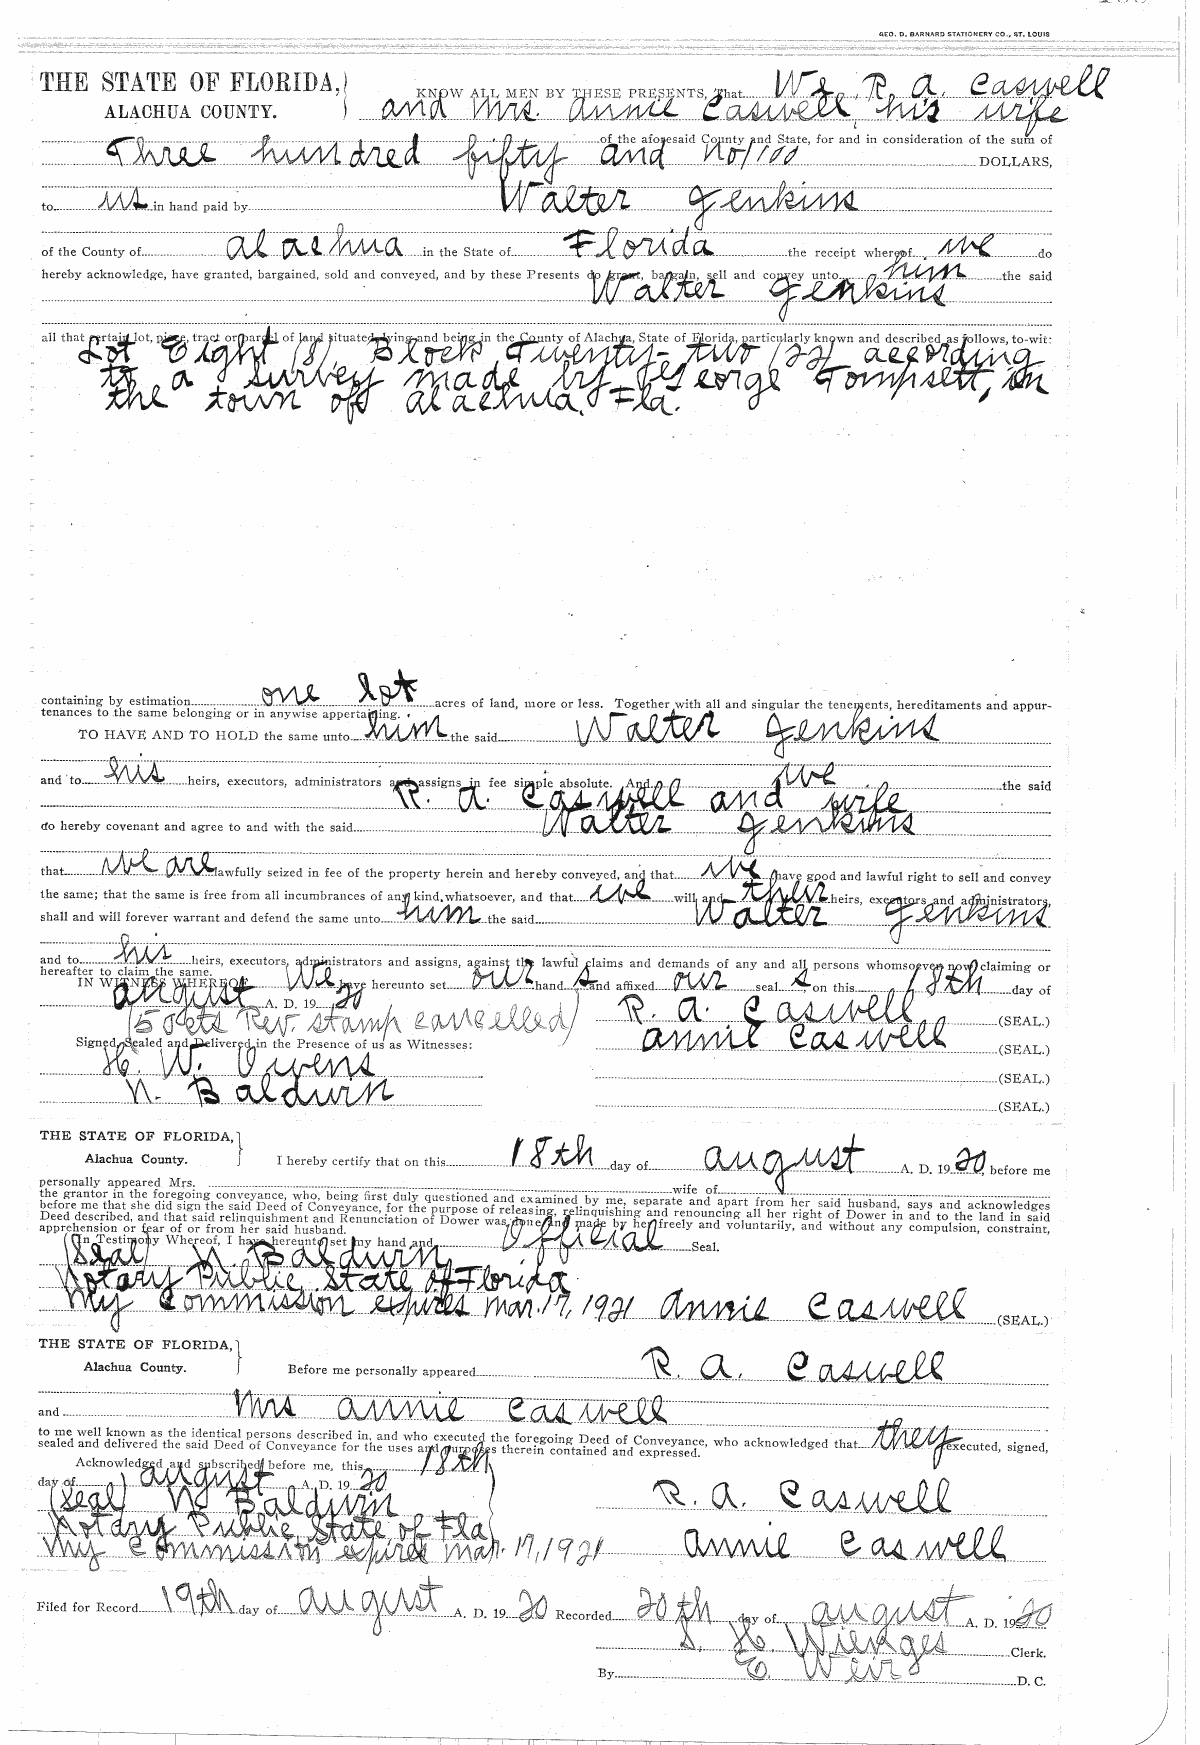 GEO. D. BARNARD STATIONERY CO., ST. LOUIS
THE STATE OF FLORIDA,
ALACHUA COUNTY.
KNOW ALL MEN BY THESE PRESENTS, That We R. A. Caswell
and Mrs. Annie Caswell, his wife
of the aforesaid County and State, for and in consideration of the sum of
Three hundred fifty and no/100 DOLLARS,
to us in hand paid by Walter Jenkins
of the County of Alachua in the State of Florida the receipt whereof we do
hereby acknowledge, have granted, bargained, sold and conveyed, and by these Presents do grant, bargain, sell and convey unto him the said
Walter Jenkins
all that certain lot, piece, tract or parcel of land situated, lying and being in the County of Alachua, State of Florida, particularly known and described as follows, to-wit:
Lot Eight (8), Block Twenty-two (22) according
to a survey made by George Tompsett, in
the town of Alachua, Fla.
containing by estimation one lot acres of land, more or less. Together with all and singular the tenements, hereditaments and appur-
tenances to the same belonging or in anywise appertaining.
TO HAVE AND TO HOLD the same unto him the said Walter Jenkins
and to his heirs, executors, administrators and assigns in fee simple absolute. And we the said
R. A. Caswell and wife
do hereby covenant and agree to and with the said Walter Jenkins
that we are lawfully seized in fee of the property herein and hereby conveyed, and that we have good and lawful right to sell and convey
the same; that the same is free from all incumbrances of any kind whatsoever, and that we will and their heirs, executors and administrators,
shall and will forever warrant and defend the same unto him the said Walter Jenkins
and to his heirs, executors, administrators and assigns, against the lawful claims and demands of any and all persons whomsoever now claiming or
hereafter to claim the same.
IN WITNESS WHEREOF, We have hereunto set our hand s and affixed our seal s on this 18th day of
August A. D. 19 20
(50 cts Rev. stamp cancelled) R. A. Caswell (SEAL.)
Signed, Sealed and Delivered in the Presence of us as Witnesses: Annie Caswell (SEAL.)
H. W. Owens (SEAL.)
N. Baldwin (SEAL.)
THE STATE OF FLORIDA,
Alachua County. I hereby certify that on this 18th day of August A. D. 19 20, before me
personally appeared Mrs. wife of
the grantor in the foregoing conveyance, who, being first duly questioned and examined by me, separate and apart from her said husband, says and acknowledges
before me that she did sign the said Deed of Conveyance, for the purpose of releasing, relinquishing and renouncing all her right of Dower in and to the land in said
Deed described, and that said relinquishment and Renunciation of Dower was done and made by her freely and voluntarily, and without any compulsion, constraint,
apprehension or fear of or from her said husband.
In Testimony Whereof, I have hereunto set my hand and Official Seal.
(Seal) N. Baldwin
Notary Public State of Florida
My Commission expires Mar. 17, 1921 Annie Caswell (SEAL.)
THE STATE OF FLORIDA,
Alachua County. Before me personally appeared R. A. Caswell
and Mrs Annie Caswell
to me well known as the identical persons described in, and who executed the foregoing Deed of Conveyance, who acknowledged that they executed, signed,
sealed and delivered the said Deed of Conveyance for the uses and purposes therein contained and expressed.
Acknowledged and subscribed before me, this 18th
day of August A. D. 19 20
(Seal) N. Baldwin R. A. Caswell
Notary Public, State of Fla
My Commission expires Mar. 17, 1921 Annie Caswell
Filed for Record 19th day of August A. D. 19 20 Recorded 20th day of August A. D. 19 20
S. H. Wienges Clerk.
By E. Weir D. C.